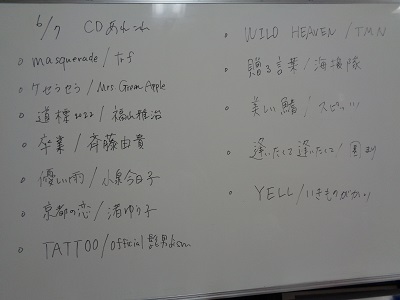 6/7 CDあれこれ
masquerade / trf
ケセラセラ / Mrs. Green Apple
道標2022 / 福山雅治
卒業 / 斉藤由貴
優しい雨 / 小泉今日子
京都の恋 / 渚ゆう子
TATTOO / Official髭男dism
WILD HEAVEN / TMN
贈る言葉 / 海援隊
美しい鰭 / スピッツ
逢いたくて逢いたくて / 園まり
YELL / いきものがかり